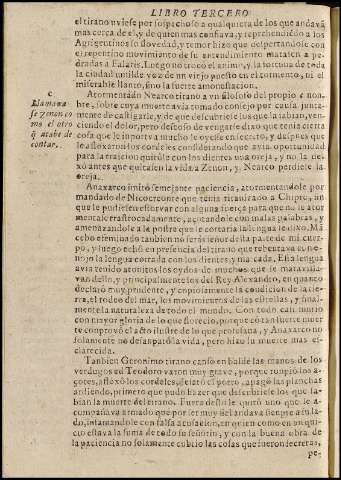 LIBRO TERCERO
el tirano uviese por sospechoso a qualquiera de los que andavã
mas cerca de el, y de quien mas confiava, y reprehendiẽdo a los
Agrigentinos su covedad, y temor hizo que despertandole con
el repentino movimiento de su entendimiento matasen a pe-
dradas a Falaris. Luego no trocò el animo, y la fortuna de toda
la ciudad umilde voz de un viejo puesto en el tormento, ni el
miserable llanto, sino la fuerte amonestacion.
c
Llamava
se Zenon co
mo el otro
q̃ acaba de
contar.
Atormentãdo Nearco tirano a un filosofo del propio c non-
bre, sobre cuya muerte avia tomado consejo por causa junta-
mente de castigarle, y de que descubriese los que la sabian, ven-
ciendo el dolor, pero deseoso de vengarse dixo que tenia cierta
cosa que le inportava mucho le oyese en secreto, y despues que
le afloxaron los cordeles considerando que avia oportunidad
para la traicion quitòle con los dientes una oreja, y no la de-
xò antes que quitasen la vida a Zenon, y Nearco perdiese la
oreja.
Anaxarco imitò semejante paciencia, atormentandole por
mandado de Nicocreonte que tenia tiranizado a Chipre, sin
que le pudiesen estorvar con alguna fuerça para que no le ator
mentase trastrocadamente, açotandole con malas palabras, y
amenazandole a la postre que le cortaria la lengua le dixo. Mã
cebo efeminado tambien no serà señor desta parte de mi cuer-
po, y luego echò en presencia del tirano que rebentava de eno-
nojo la lengua cortada con los dientes, y mascada. Esta lengua
avia tenido atonitos los oydos de muchos que se maravilla-
van dello, y principalmente los del Rey Alexandro, en quanto
declarò muy prudente, y copiosamente la condicion de la tie-
rra, el rodeo del mar, los movimientos de las estrellas, y final-
mente la naturaleza de todo el mundo. Con todo casi murio
con mayor gloria de lo que florecio, porque cõ tan fuerte muer
te conprovò el acto ilustre de lo que profesava, y Anaxarco no
solamente no desanparò la vida, pero hizo su muerte mas es-
clarecida.
Tanbien Geronimo tirano cansò en balde las manos de los
verdugos en Teodoro varon muy grave, porque ronpiò los a-
çotes, afloxò los cordeles, desatò el potro, apagò las planchas
ardiendo, primero que pudo hazer que descubriese los que sa-
bian la muerte del tirano. Fuera desto le quitò uno que le a-
compañava armado que por ser muy fiel andava sienpre a su la-
do, infamandole con falsa acusacion, en quien como en un qui-
cio estava la suma de todo su señorio, y con la buena obra de
la paciencia no solamente cubriò las cosas que fueron secretas,
pe-